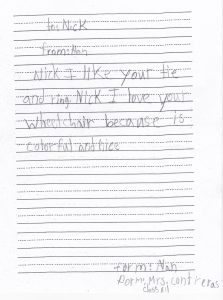 to: Nick
from: Nan
Nick I like your tie
and ring. Nick I love your
wheelchair because is
colorful and nice
form: Nan
Form: Mrs. Contreras
class